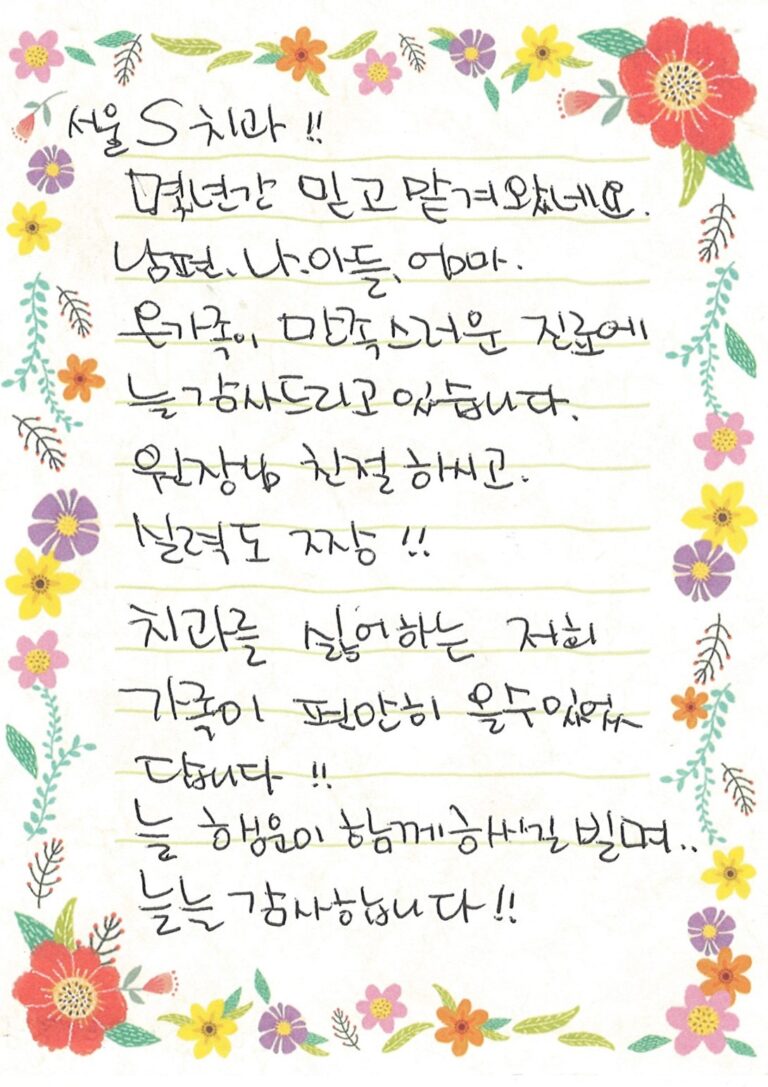 서울 S 치과 !!
몇년간 믿고 맡겨왔네요.
남편. 나. 아들. 엄마.
온가족이 만족스러운 진료에
늘 감사드리고 있습니다.
원장님 친절하시고.
실력도 짱 !!
치과를 싫어하는 저희
가족이 편안히 올수있었
답니다 !!
늘 행운이 함께하시길 빌며..
늘늘 감사합니다!!